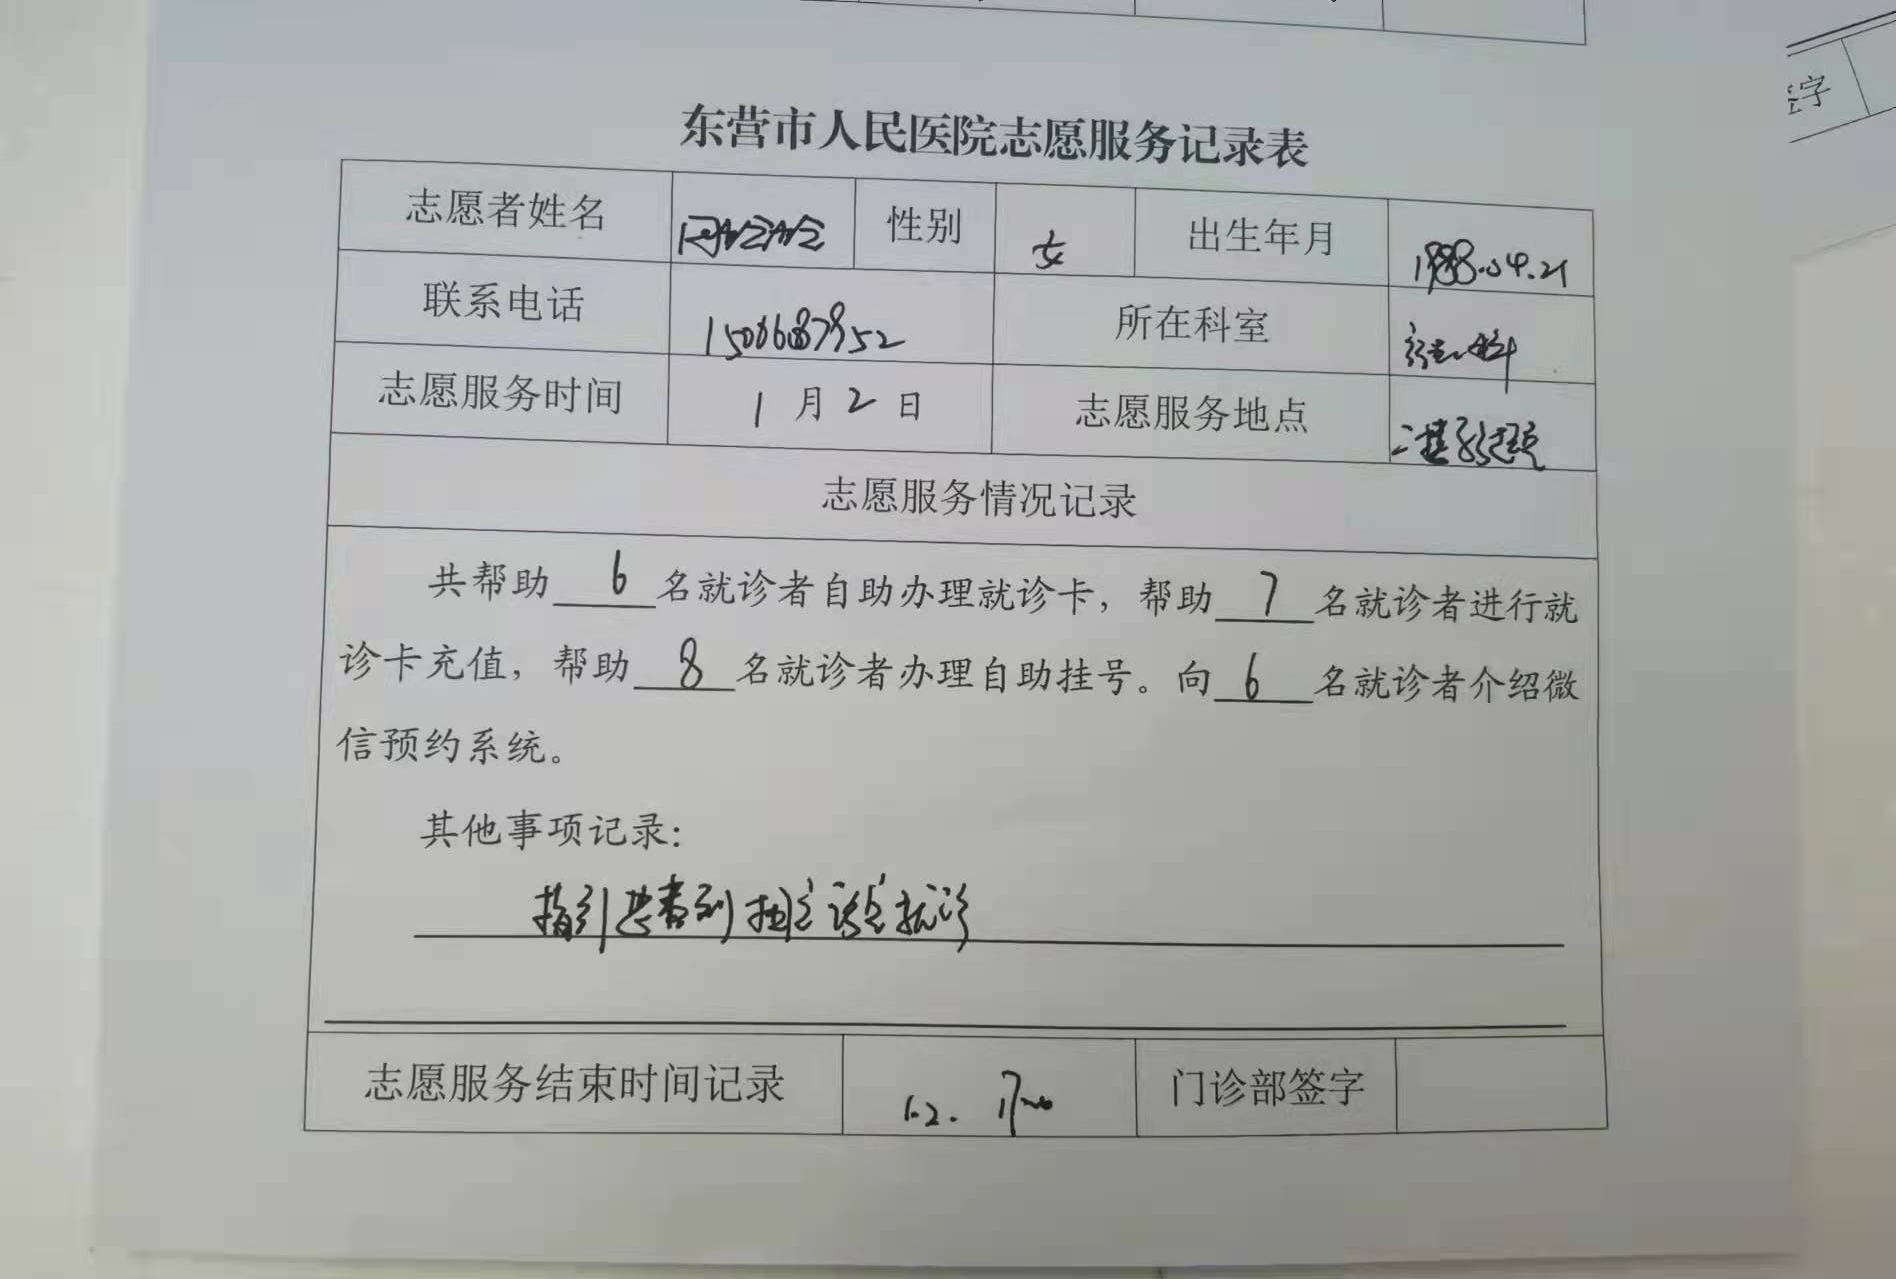 签字
东营市人民医院志愿服务记录表
志愿者姓名 性别 女 出生年月 1988.04.21
联系电话 所在科室
志愿服务时间 1月2日 志愿服务地点
志愿服务情况记录
共帮助6名就诊者自助办理就诊卡，帮助7名就诊者进行就
诊卡充值，帮助8名就诊者办理自助挂号。向6名就诊者介绍微
信预约系统。
其他事项记录：
指引患者到 就诊
志愿服务结束时间记录 1.2. 17:00 门诊部签字